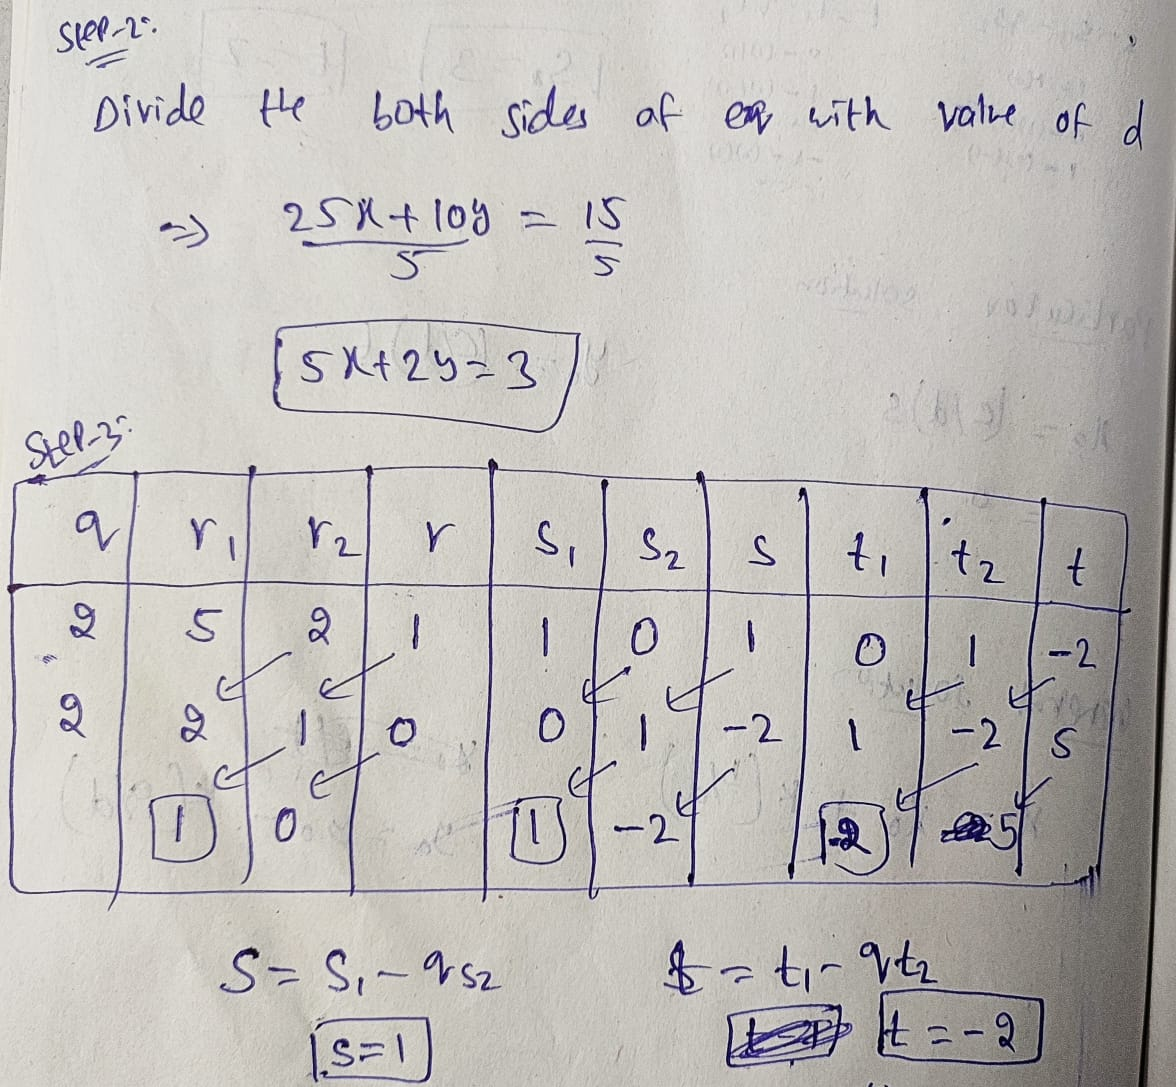 Step-2:
Divide the both sides of eq with value of d
⇒ 25x+10y/5 = 15/5
5x+2y=3
Step-3:
q r₁ r₂ r s₁ s₂ s t₁ t₂ t
2 5 2 1 1 0 1 0 1 -2
2 2 1 0 0 1 -2 1 -2 5
1 0 1 -2 -2 5
S = S₁ - qs₂ t = t₁ - qt₂
s=1 t=-2